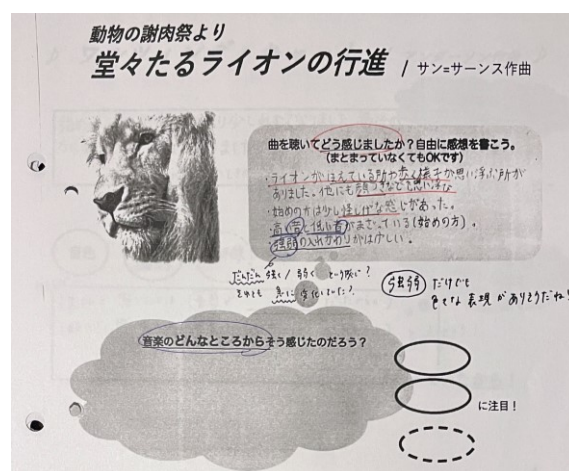 動物の謝肉祭より
堂々たるライオンの行進 / サン=サーンス作曲
曲を聴いてどう感じましたか?自由に感想を書こう。
(まとまっていなくてもOKです)
・ライオンがほえている所や歩く様子が思い浮ぶ所が
ありました。他にも
・始めの方は少し怪しげな感じがあった。
・高い音と低い音がまざっている(始めの方)。
・強弱の入れかわりがはげしい。
だんだん強く/弱く
それとも急に変化していた?
強弱 だけでも
色々な表現がありそうだね!
音楽のどんなところからそう感じたのだろう?
に注目!